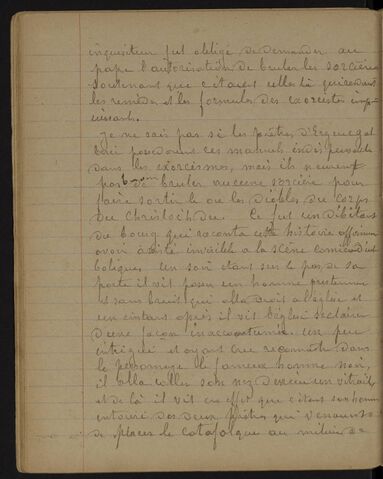 inquisiteur fut obligé de demander au
pape l'autorisation de bruler les sorcières
soutenant que c'étaient celles là qui
les remèdes et les formules des exorcistes imp
uissants.
Je ne sais pas si les prêtres d'Erguegat
ces manuels indispensables
dans les exorcismes, mais ils n'eurent
pas besoin de bruler aucune sorcière pour
faire sortir le ou les diables du corps
du Christoch du. Ce fut un débitant
du bourg qui raconta cette histoire affirmant
avoir assisté invisible a la scène comico diab
boliques. un soir étant sur le pas de sa
porte il vit passer un homme
et sans bruit qui alla droit a l'église et
un instant après il vit l'église s'éclairer
d'une façon inaccoutumée. un peu
intrigué et ayant cru reconnaitre dans
le personnage le fameux homme noir,
il alla coller son nez devant un vitrail,
et de là il vit en effet que c'était son homme
entouré des deux prêtres qui venaient
de placer le catafalque au milieu de